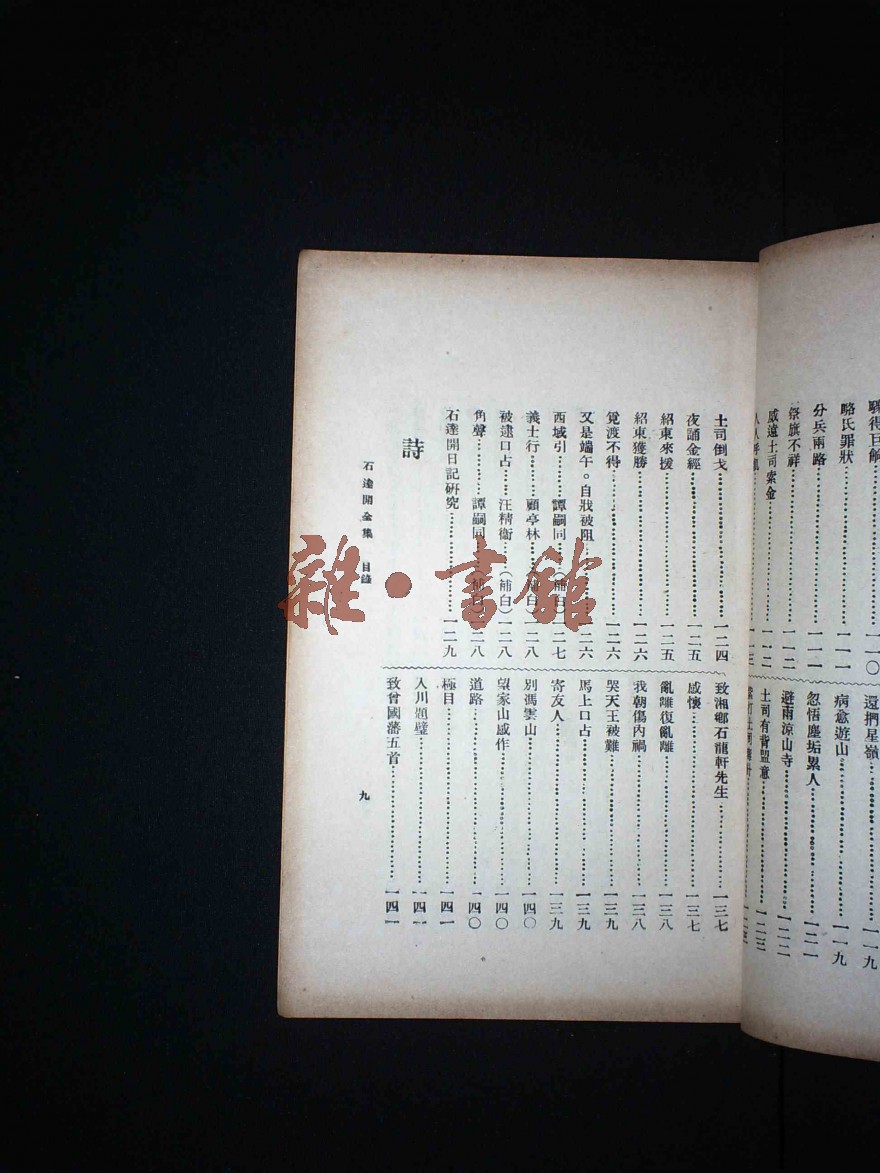 騎得巨艄……一一〇
略氏罪狀……一一一
分兵兩路……一一一
祭旗不祥……一一二
威遠土司索金……一一二
人人呼飢……一一三
還捫星嶺……一一九
病愈遊山……一一九
忽悟塵垢累人……一二一
避雨涼山寺……一二二
土司有背盟意……一二三
土司倒戈……一二四
夜誦金經……一二五
紹東來援……一二五
紹東獲勝……一二六
覓渡不得……一二六
又是端午。自戕被阻……一二六
西域引……譚嗣同……(補白)一二七
義士行……顧亭林……(補白)一二八
被逮口占……汪精衞……(補白)一二八
角聲……譚嗣同……(補白)一二八
石達開日記硏究……一二九
詩
致湘鄉石龍軒先生……一三七
感懷……一三七
亂離復亂離……一三八
我朝傷內禍……一三八
哭天王被難……一三九
馬上口占……一三九
寄友人……一三九
別馮雲山……一四〇
望家山感作……一四〇
道路……一四〇
極目……一四一
入川題壁……一四一
致曾國藩五首……一四一
石達開全集 目錄
九
雜·書館